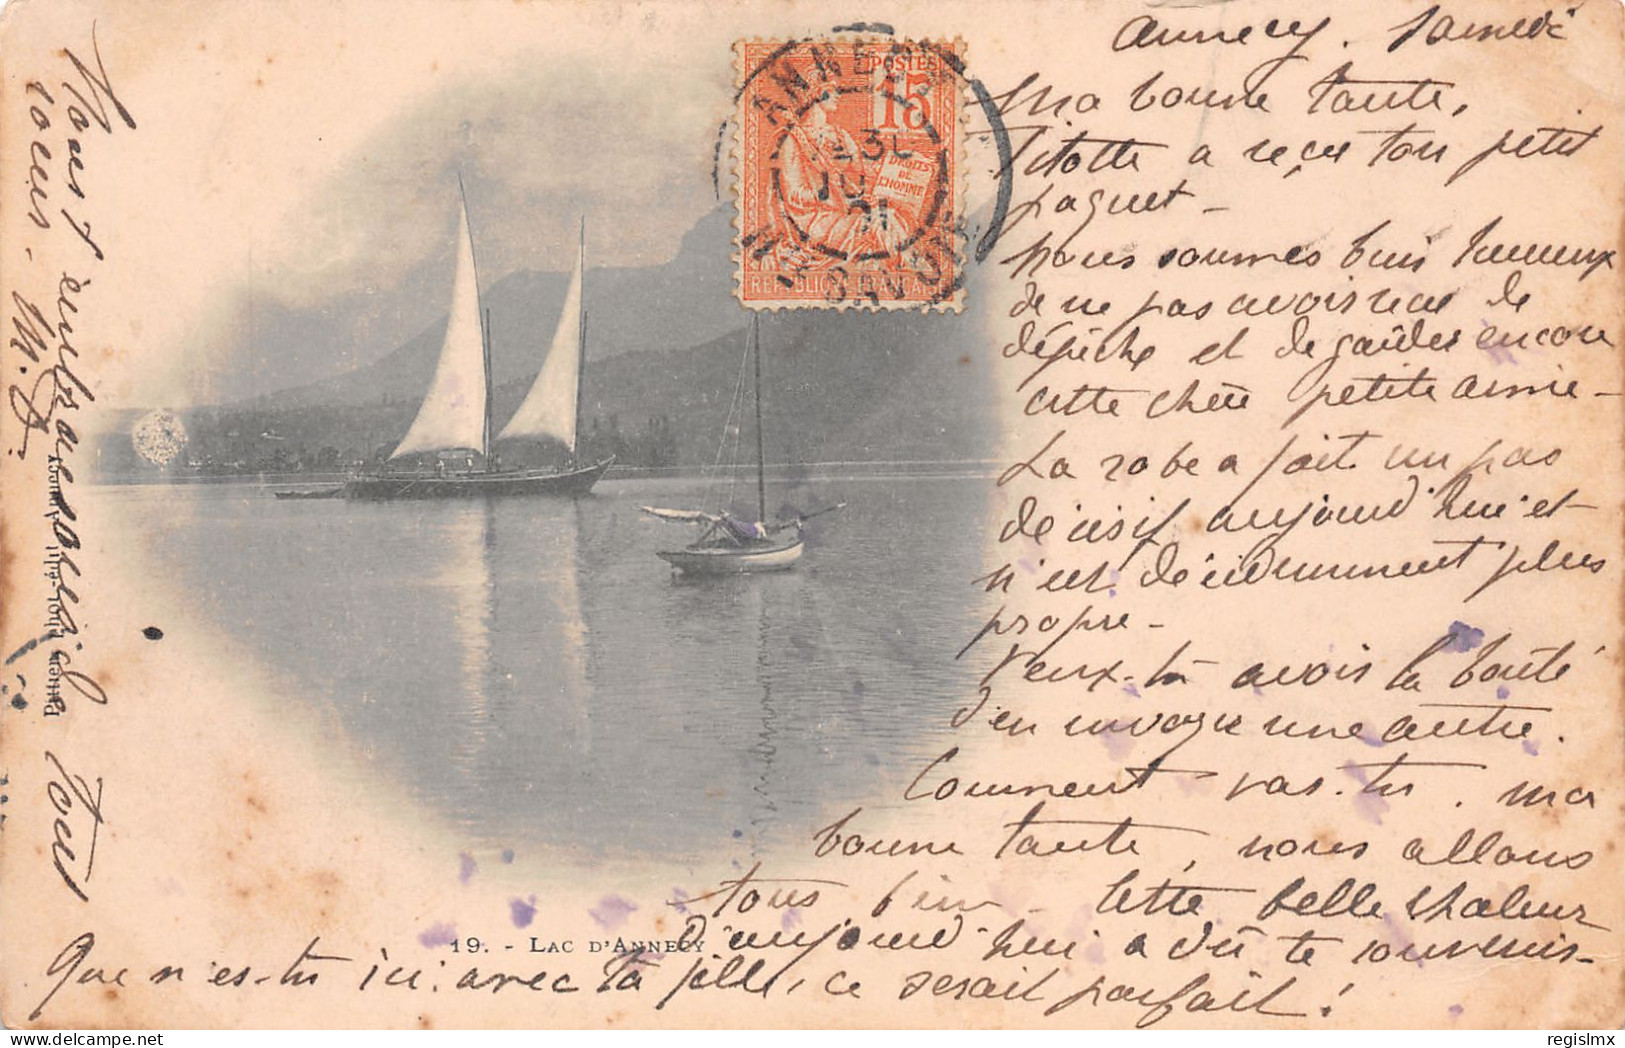 Annecy. Samedi
Ma bonne tante,
Titotte a reçu ton petit
paquet -
Nous sommes bien heureux
de ne pas avoir reçu de
dépêche et de garder encore
cette chère petite amie -
La robe a fait un pas
décisif aujourd'hui et
n'est décidemment plus
propre -
Veux-tu avoir la bonté
d'en envoyer une autre.
Comment vas-tu, ma
bonne tante, nous allons
tous bien - Cette belle chaleur
d'aujourd'hui a dû te souvenir -
Que n'es-tu ici avec ta fille, ce serait parfait !
Nous t'embrassons tous
tous. M. J.
19. - LAC D'ANNECY
Pittier, phot-édit., Annecy
POSTES
15
DROITS
DE
L'HOMME
REPUBLIQUE FRANÇAISE
ANNECY
30
01
Hte SAVOIE
regislmx